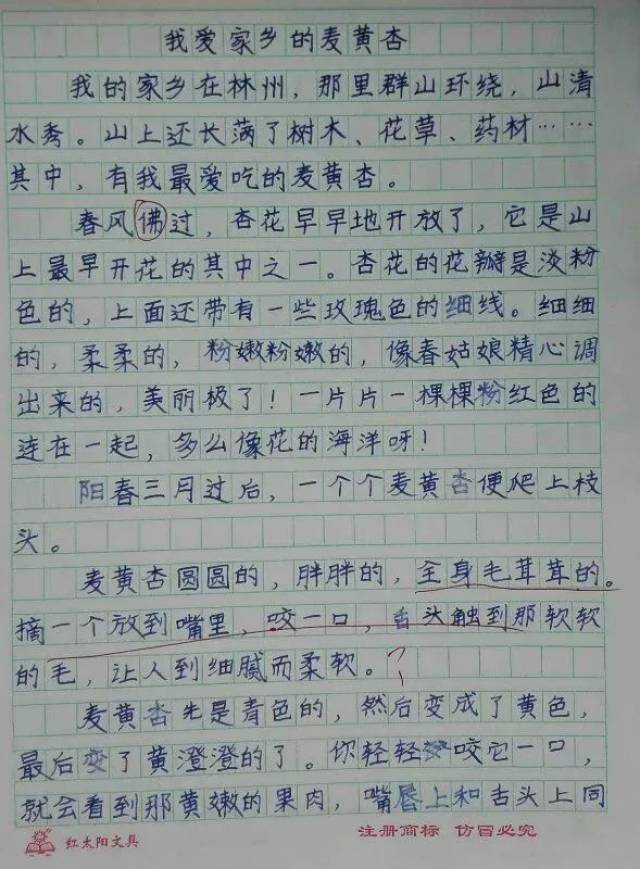 我爱家乡的麦黄杏
我的家乡在林州，那里群山环绕，山清
水秀。山上还长满了树木、花草、药材……
其中，有我最爱吃的麦黄杏。
春风佛过，杏花早早地开放了，它是山
上最早开花的其中之一。杏花的花瓣是淡粉
色的，上面还带有一些玫瑰色的细线。细细
的，柔柔的，粉嫩粉嫩的，像春姑娘精心调
出来的，美丽极了！一片片一棵棵粉红色的
连在一起，多么像花的海洋呀！
阳春三月过后，一个个麦黄杏便爬上枝
头。
麦黄杏圆圆的，胖胖的，全身毛茸茸的。
摘一个放到嘴里，咬一口，舌头触到那软软
的毛，让人到细腻而柔软。？
麦黄杏先是青色的，然后变成了黄色，
最后变了黄澄澄的了。你轻轻咬它一口，
就会看到那黄嫩的果肉，嘴唇上和舌头上同
红太阳文具 注册商标 仿冒必究